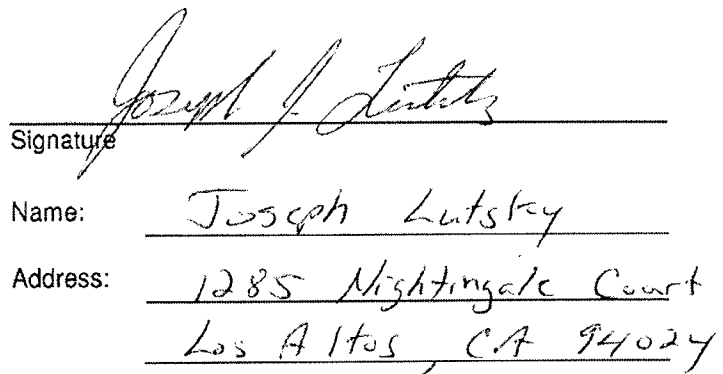 Joseph J. Lutsky
Signature
Name: Joseph Lutsky
Address: 1285 Nightingale Court
Los Altos, CA 94024